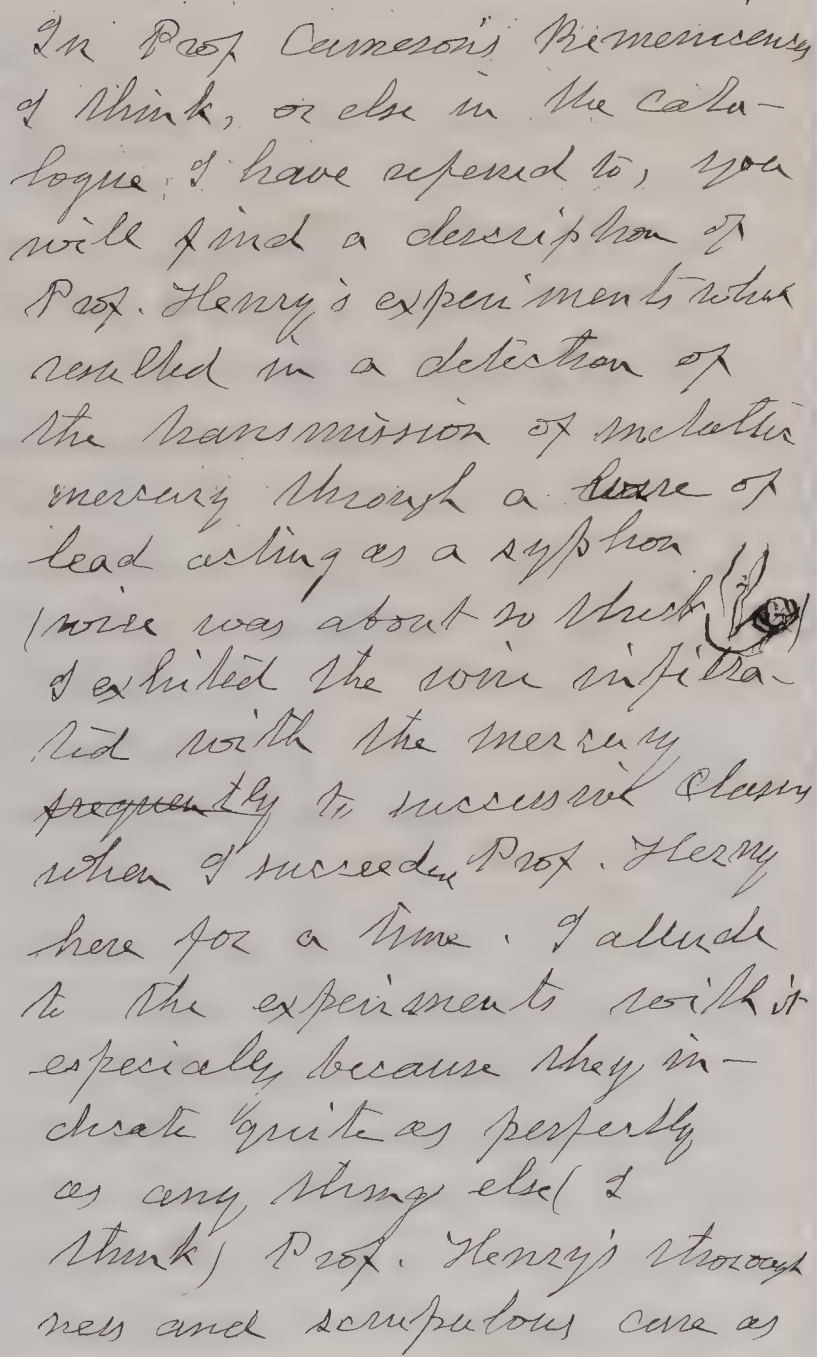 In Prof Cameron's Remeniscenses
I think, or else in the cata-
logue I have referred to, you
will find a description of
Prof. Henry's experiments which
resulted in a detection of
the transmission of metallic
mercury through a wire of
lead acting as a syphon
(wire was about so thick )
I exhited the wire infiltra-
ted with the mercury
frequently to successive classes
when I succeeded Prof. Henry
here for a time. I allude
to the experiments with it
especially because they in-
dicate quite as perfectly
as any thing else (I
think) Prof. Henry's thorough
ness and scrupulous care as